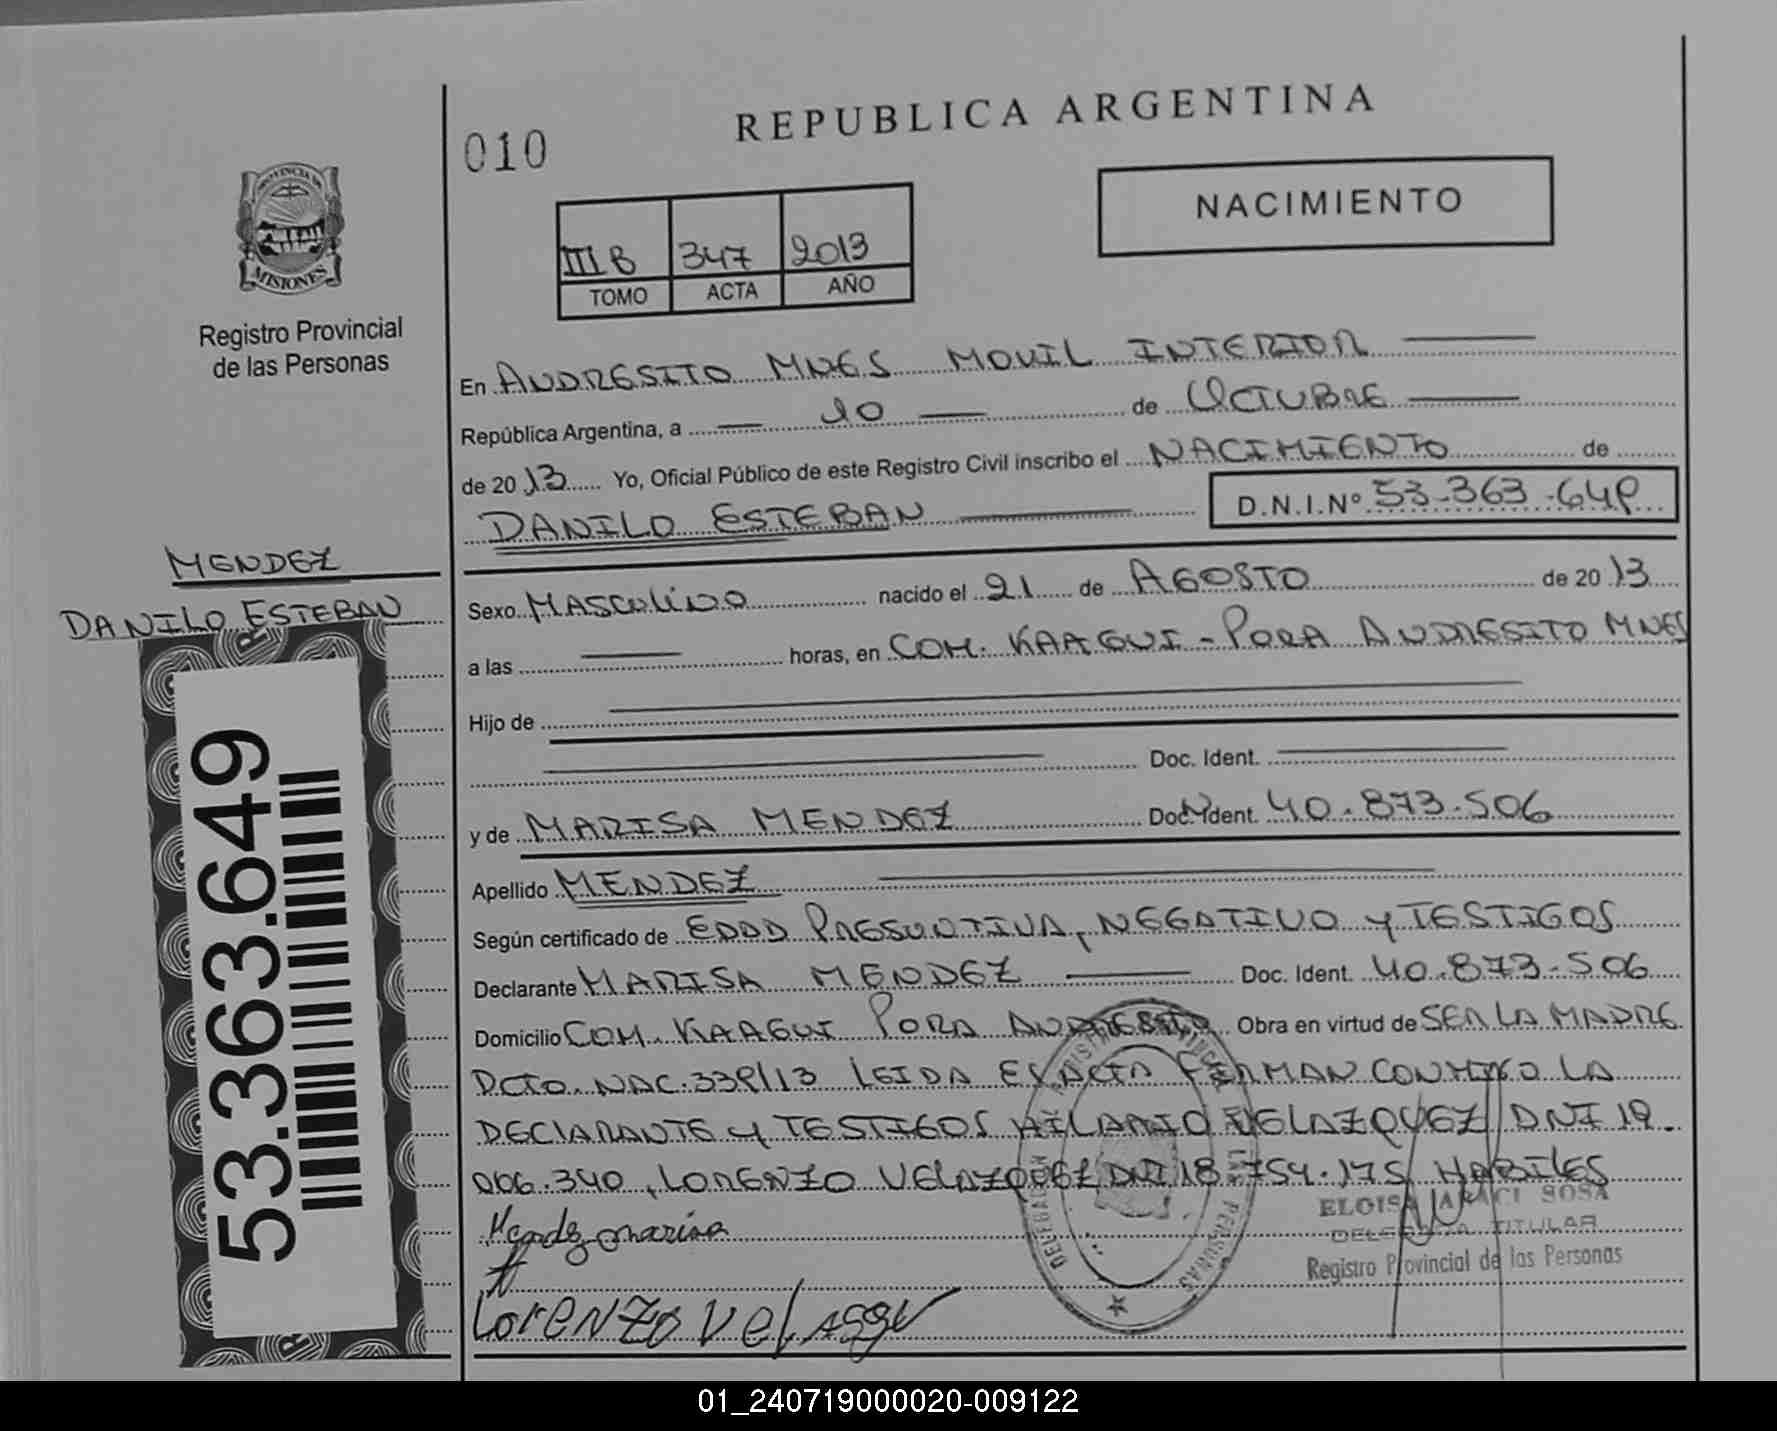 REPUBLICA ARGENTINA
010
NACIMIENTO
III B 347 2013
TOMO ACTA AÑO
PROVINCIA DE
MISIONES
Registro Provincial
de las Personas
En ANDRESITO MNES MOVIL INTERIOR
República Argentina, a 10 de OCTUBRE
de 2013 Yo, Oficial Público de este Registro Civil inscribo el NACIMIENTO de
DANILO ESTEBAN D.N.I.Nº 53.363.649
MENDEZ
DANILO ESTEBAN
53.363.649
Sexo MASCULINO nacido el 21 de AGOSTO de 2013
a las horas, en COM. KAAGUI-PORA ANDRESITO MNES
Hijo de
Doc. Ident.
y de MARISA MENDEZ Doc. Ident. 40.873.506
Apellido MENDEZ
Según certificado de EDAD PRESUNTIVA, NEGATIVO y TESTIGOS
Declarante MARISA MENDEZ Doc. Ident. 40.873.506
Domicilio COM. KAAGUI PORA ANDRESITO Obra en virtud de SER LA MADRE
DCTO. NAC. 339/13 LEIDA EXACTA FIRMAN CONMIGO LA
DECLARANTE y TESTIGOS HILARIO VELAZQUEZ DNI 19.
006.340, LORENZO VELAZQUEZ DNI 18.754.175 HABILES
ELOISA JARACI SOSA
DELEGADA TITULAR
Registro Provincial de las Personas
Mendez marisa
LORENZO
01_240719000020-009122